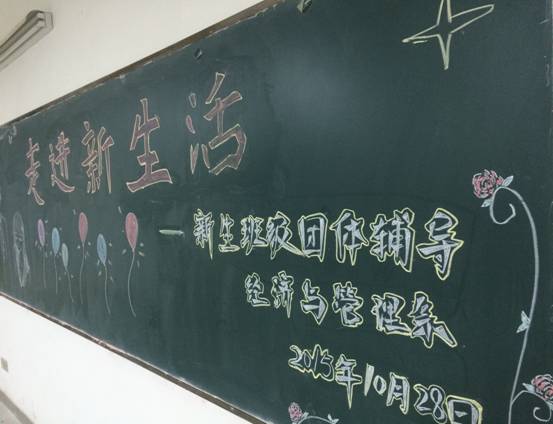 走进新生活
—新生班级团体辅导
经济与管理系
2015年10月28日